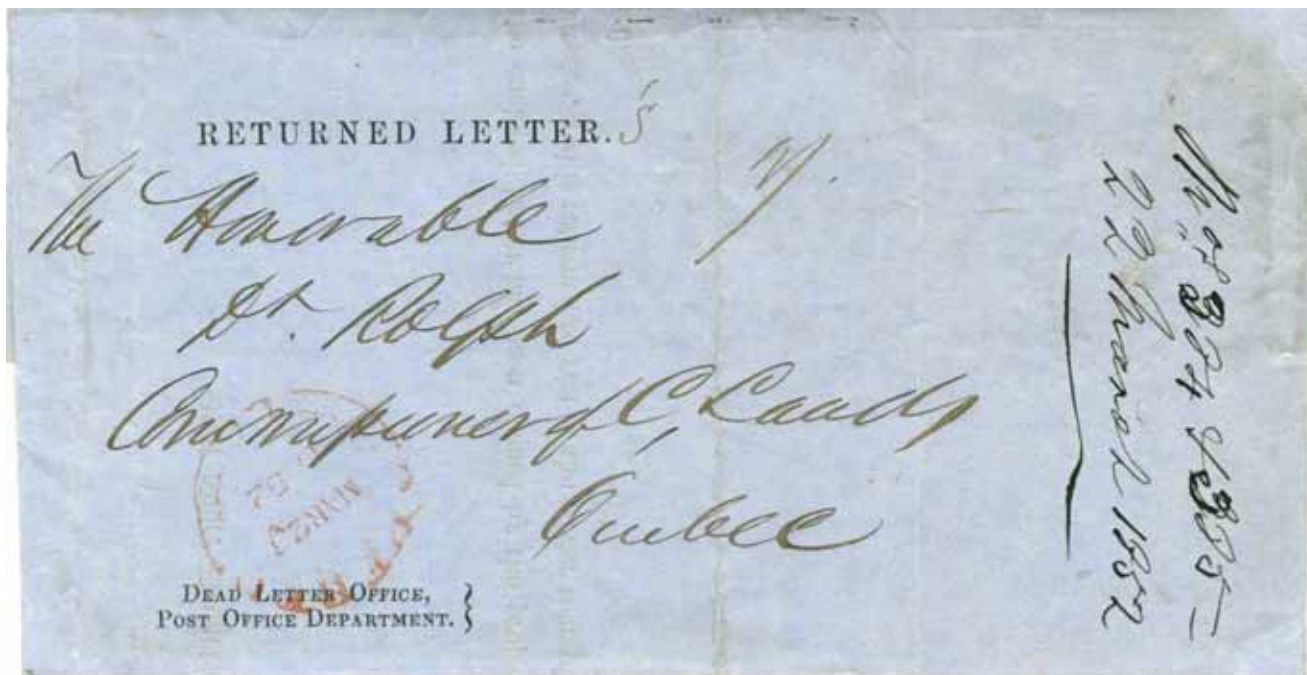 RETURNED LETTER.s
The Honorable
Dr. Rolph
Commissioner of C. Lands
Quebec
MAR 23
52
DEAD LETTER OFFICE,
POST OFFICE DEPARTMENT.
22 March 1852